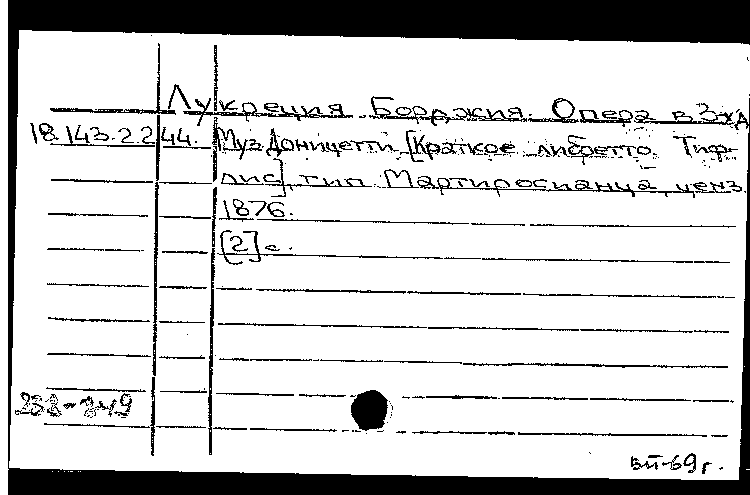 Лукреция Борджия. Опера в 3хд
18.143.2.244. Муз Доницетти [Краткое либретто. Тиф-
лис], тип. Мартиросианца, ценз.
1876.
[2] с.
238-349
вп-69г.